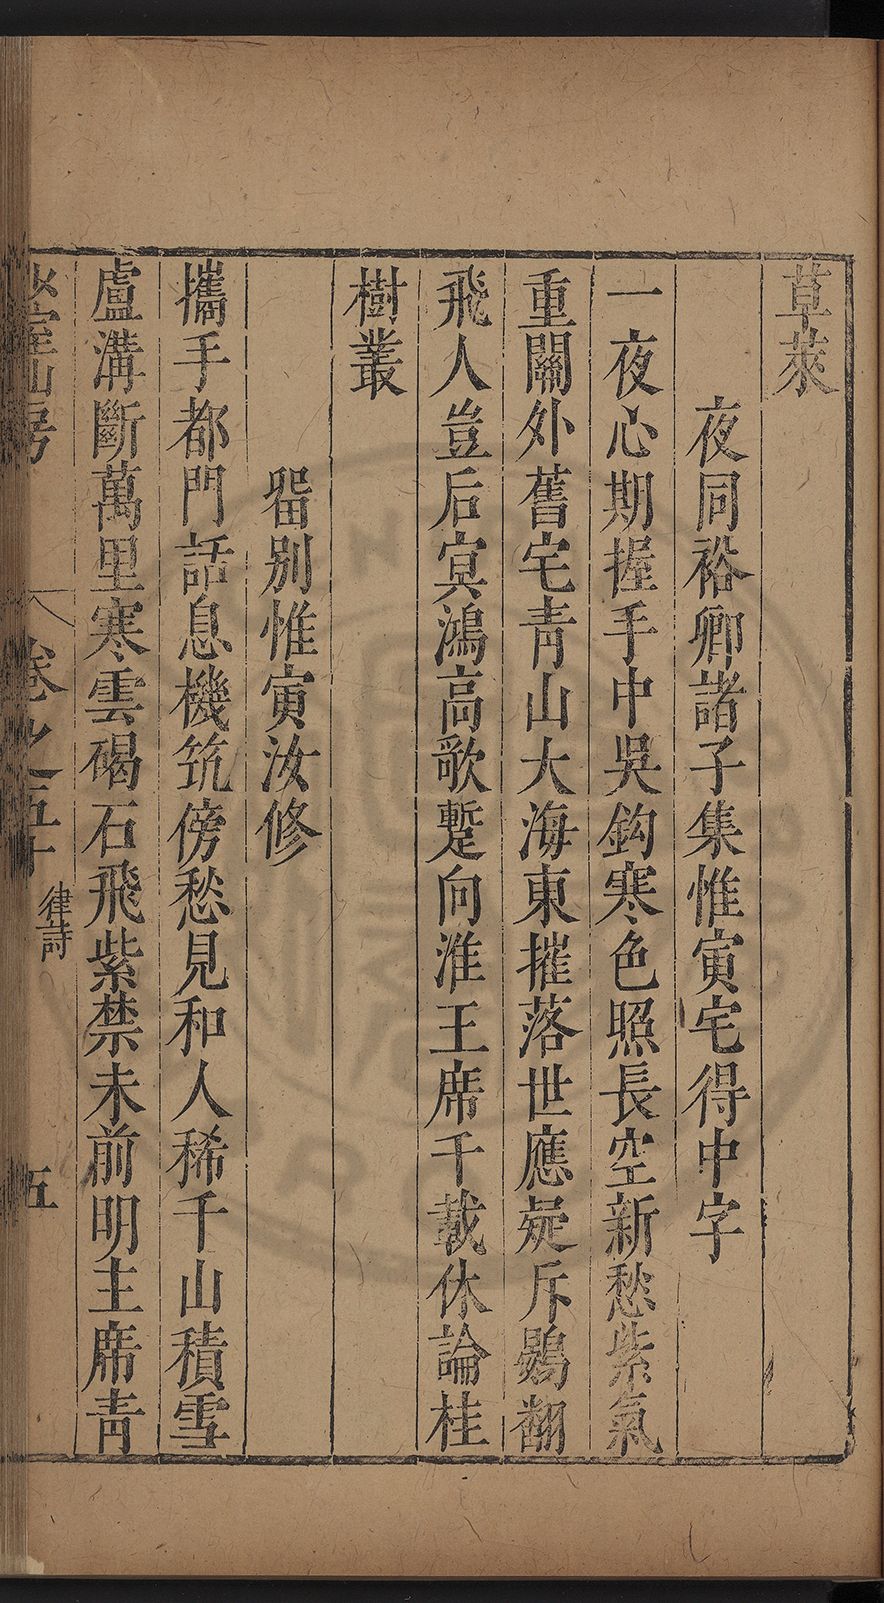 草萊
夜同裕卿諸子集惟寅宅得中字
一夜心期握手中吳鉤寒色照長空新愁紫氣
重關外舊宅青山大海東摧落世應疑斥鷃翻
飛人豈后冥鴻高歌蹔向淮王席千載休論桂
樹叢
畱別惟寅汝修
攜手都門話息機筑傍愁見和人稀千山積雪
盧溝斷萬里寒雲碣石飛紫禁未前明主席青
少室山房 卷之五十 律詩 五